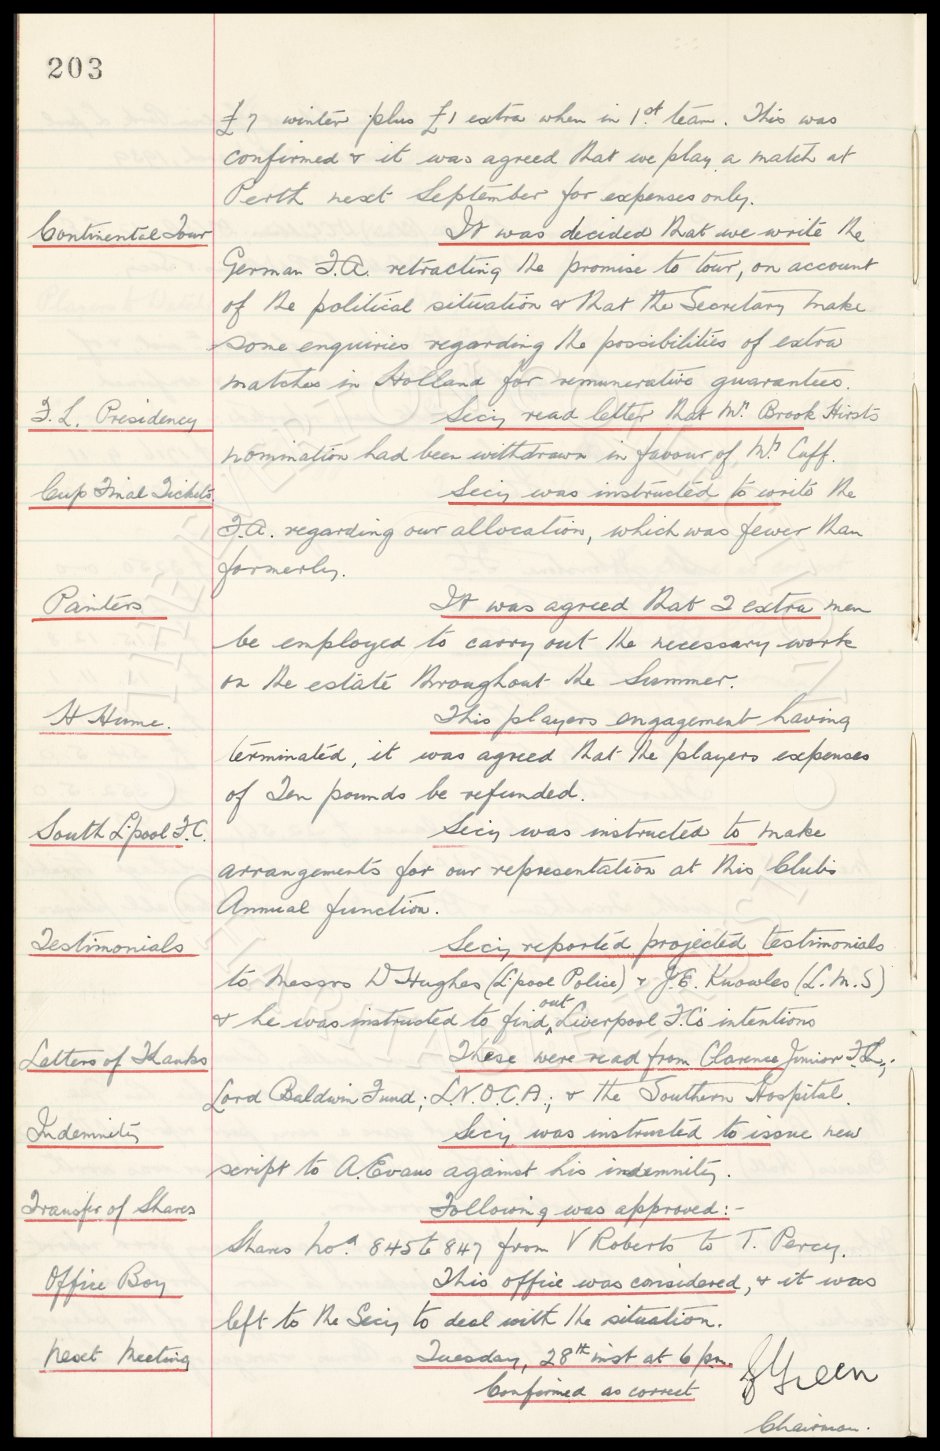 203
£7 winter plus £1 extra when in 1st team. This was
confirmed & it was agreed that we play a match at
Perth next September for expenses only.
Continental Tour It was decided that we write the
German F.A. retracting the promise to tour, on account
of the political situation & that the Secretary make
some enquiries regarding the possibilities of extra
matches in Holland for remunerative guarantees.
F.L. Presidency Secy read letter that Mr. Brook Hirsts
nomination had been withdrawn in favour of Mr. Cuff.
Cup Final Tickets Secy was instructed to write the
F.A. regarding our allocation, which was fewer than
formerly.
Painters It was agreed that 2 extra men
be employed to carry out the necessary work
on the estate throughout the Summer.
H Hume. This players engagement having
terminated, it was agreed that the players expenses
of Ten pounds be refunded.
South L'pool F.C. Secy was instructed to make
arrangements for our representation at this Clubs
Annual function.
Testimonials Secy reported projected testimonials
to Messrs D Hughes (L'pool Police) & J.E. Knowles (L.M.S)
& he was instructed to find out Liverpool F.C's intentions
Letters of Thanks These were read from Clarence Junior F.L.;
Lord Baldwin Fund; L.N.O.C.A.; & the Southern Hospital.
Indemnity Secy was instructed to issue new
script to A. Evans against his indemnity.
Transfer of Shares Following was approved:-
Shares No.s 845 to 847 from V Roberts to T. Percy.
Office Boy This office was considered, & it was
left to the Secy to deal with the situation.
Next Meeting Tuesday, 28th inst at 6 pm.
Confirmed as correct Green
Chairman.